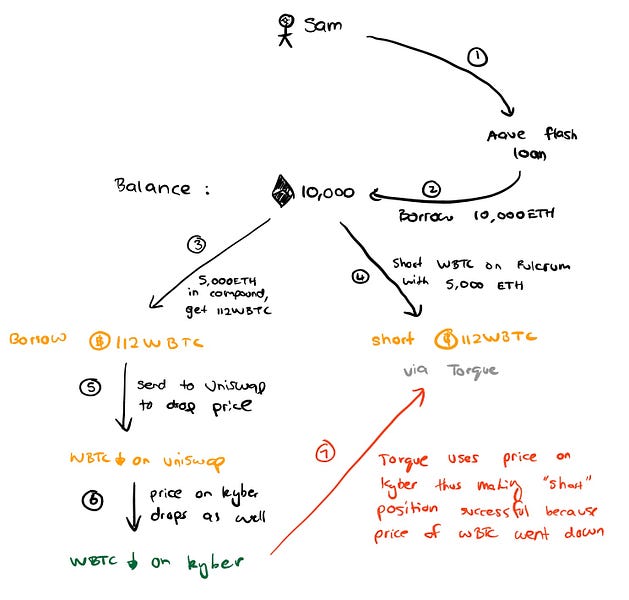 Sam
①
Aave flash
loan
Balance : 10,000
②
Borrow 10,000 ETH
③
5,000 ETH
in compound,
get 112 WBTC
④
Short WBTC on Fulcrum
with 5,000 ETH
Borrow ₿ 112 WBTC
short ₿ 112 WBTC
via Torque
⑤
send to Uniswap
to drop price
WBTC ↓ on uniswap
⑥
price on kyber
drops as well
WBTC ↓ on kyber
⑦
Torque uses price on
kyber thus making "short"
position successful because
price of WBTC went down